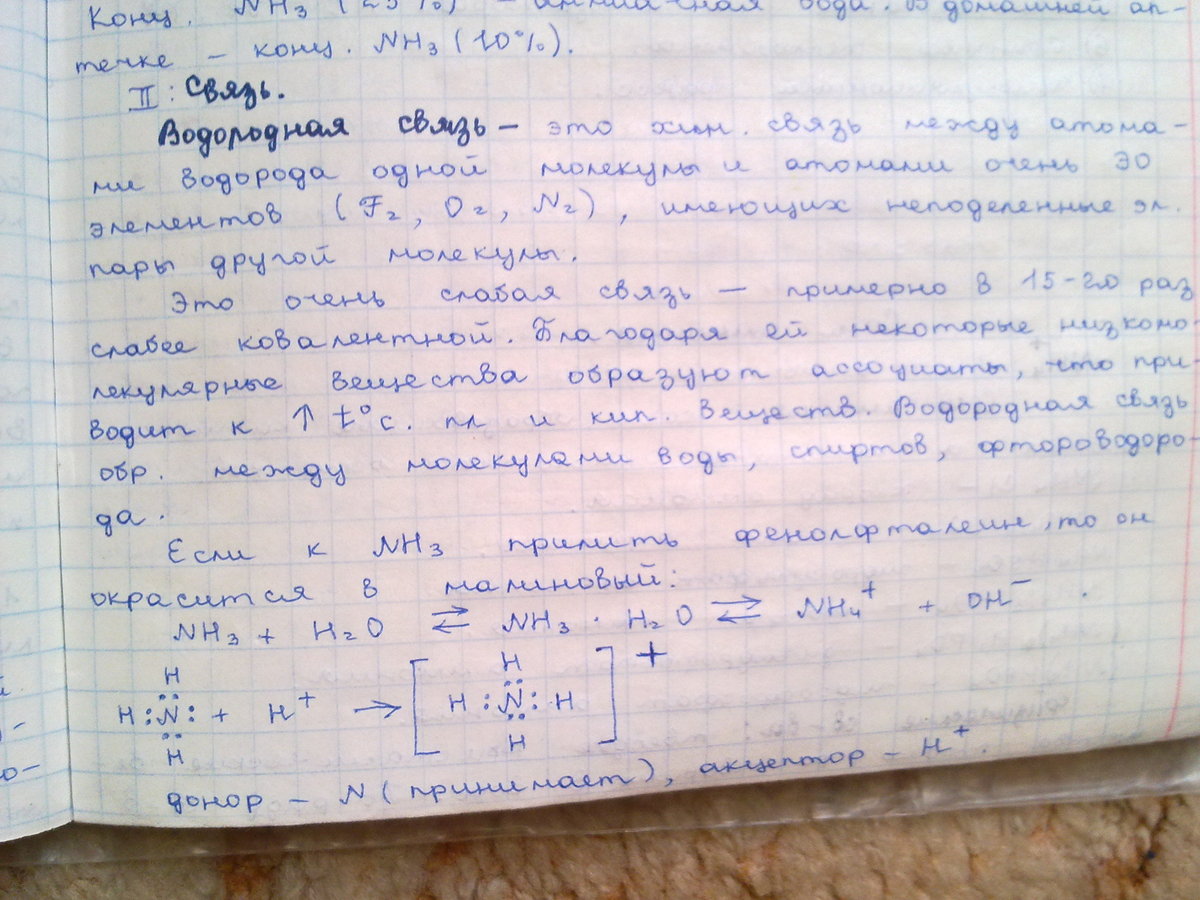 Конц. NH₃ (25%) – аммиачная вода. В домашней ап-
течке – конц. NH₃ (10%).
II: Связь.
Водородная связь – это хим. связь между атома-
ми водорода одной молекулы и атомами очень ЭО
элементов (F₂, O₂, N₂), имеющих неподеленные эл.
пары другой молекулы.
Это очень слабая связь – примерно в 15-20 раз
слабее ковалентной. Благодаря ей некоторые низкомо
лекулярные вещества образуют ассоциаты, что при-
водит к ↑ t°с. пл и кип. веществ. Водородная связь
обр. между молекулами воды, спиртов, фтороводоро-
да.
Если к NH₃ прилить фенолфталеин, то он
окрасится в малиновый:
NH₃ + H₂O ⇌ NH₃ · H₂O ⇌ NH₄⁺ + OH⁻.
H H
H :N: + H⁺ → [H :N: H]⁺
H H
донор – N (принимает), акцептор – H⁺.